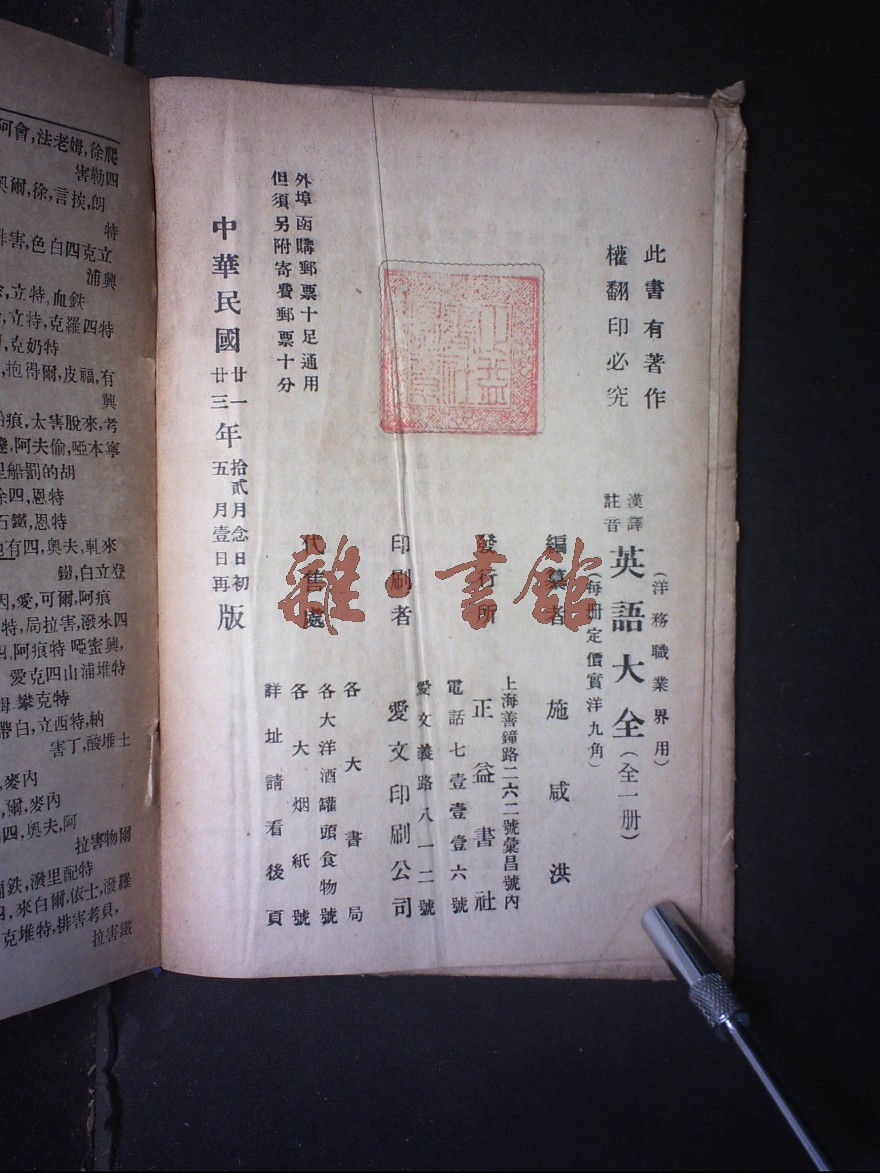 此書有著作
權翻印必究
(洋務職業界用)
漢譯
註音
英語大全(全一册)
(每册定價實洋九角)
編纂者 施咸洪
發行所
上海善鐘路二六二號彙昌號內
正益書社
電話七壹壹壹六號
印刷者
愛文義路八一二號
愛文印刷公司
代售處
各大書局
各大洋酒罐頭食物號
各大烟紙號
詳址請看後頁
外埠函購郵票十足通用
但須另附寄費郵票十分
中華民國廿一年拾貳月念日初版
廿三年五月壹日再版
雜·書館
四勒害
特
浦興
立特,血鉄
立特,克羅四特
克奶特
抱得爾,皮福,有
興
痕,太害脫來,考
阿夫偷,啞本寧
里船罰的胡
四,恩特
石鐵,恩特
也有四,奧夫,軋來
鐵,白立登
因,愛,可爾,阿痕
特,局拉害,潑來四
阿痕特啞蜜興,
愛克四山浦堆特
攀克特
帶白,立特西,納
害丁,酸堆士
麥內
爾,麥內
四,奧夫,阿
拉害物爾
鉄,潑里配特
四,來白爾,依士,潑羅
克堆特,排害考貝,
拉害鐵